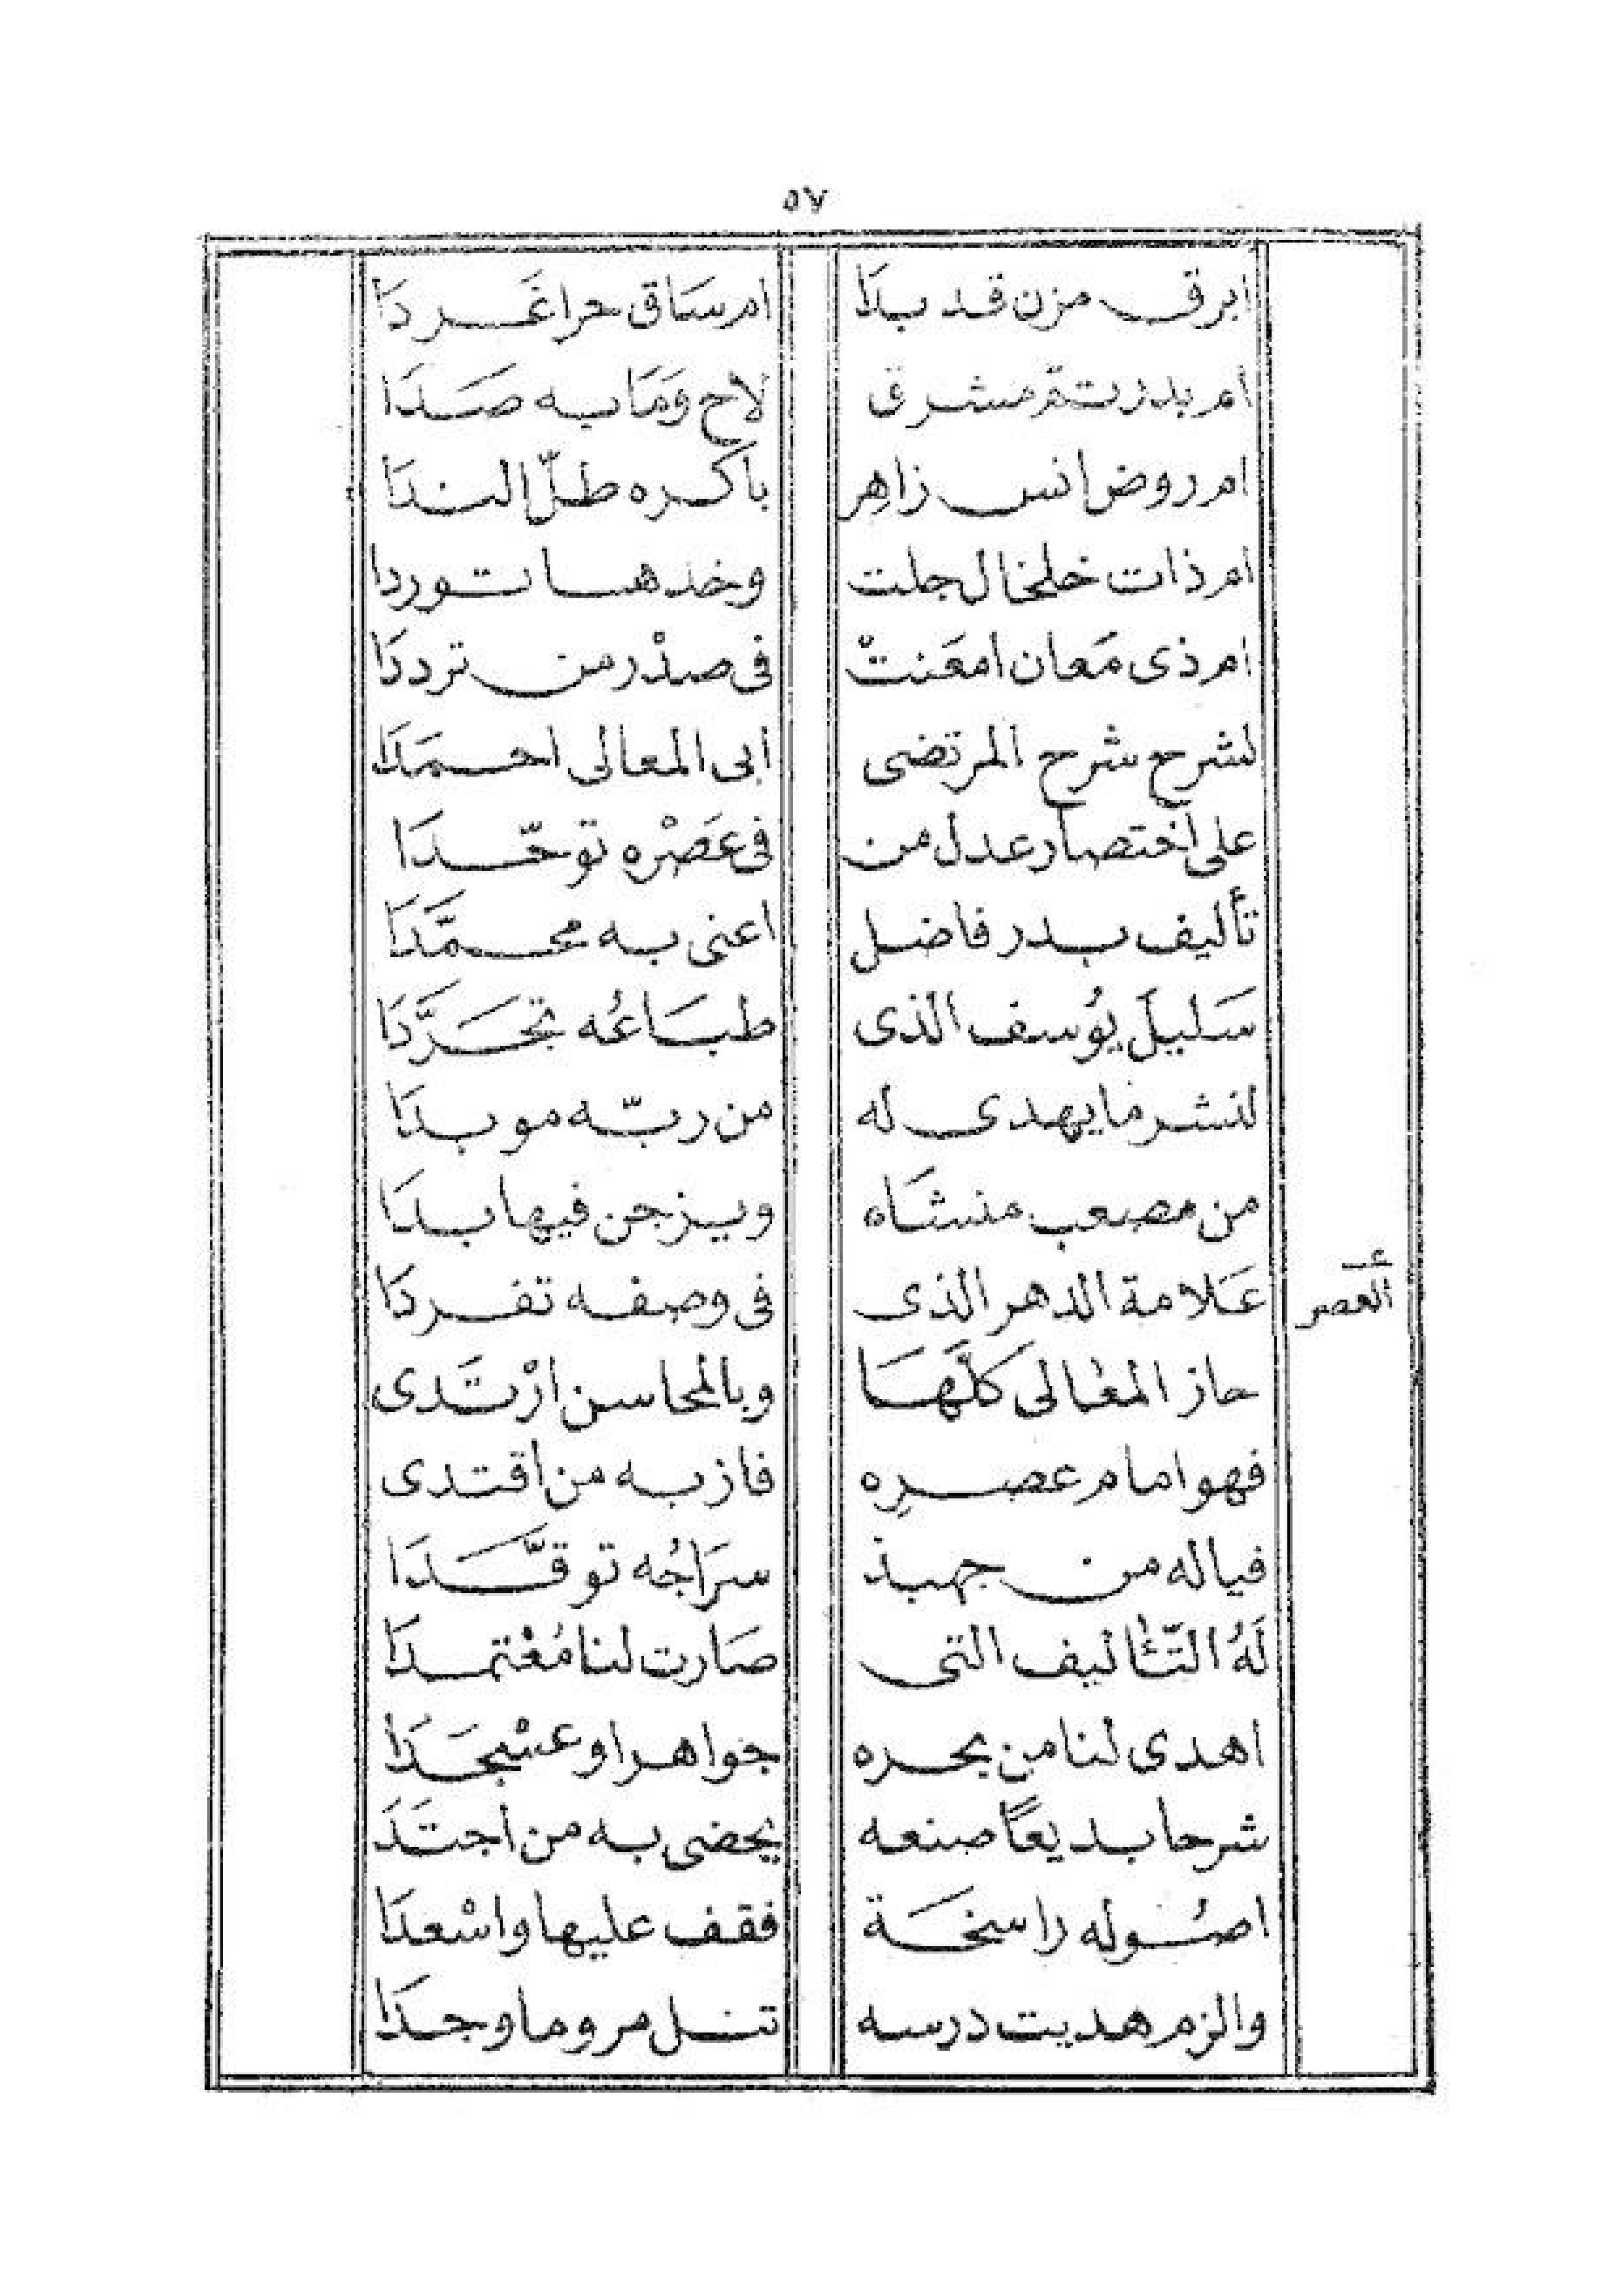 ٥٧
ابرق مزن قد بدَا ام سَاق حرا غَردَا
ام بدر تمّ مشرق لاح وَمَا به صَدَا
ام روض انس زاهِر باكره طلّ الندَا
ام ذات خلخال جلت وخدها توردا
ام ذى مَعان امعَنتْ فى صدْر من ترددَا
لشرح شرح المرتضى ابى المعالى احمَدَا
على اختصار عدل من فى عَصْره توحّدَا
تأليف بدر فاضل اعنى به محمَّدَا
سَليل يُوسف الذى طبَاعُه تجَرَّدَا
لنشر ما يهدى له من ربّه موبدَا
من مصعب منشَاه ويزجن فيها بدَا
عَلامة الدهر الذى فى وصفه تفردَا
العصر
حاز المعالى كلّهَا وبالمحاسن ارْتَدى
فهو امام عصرِه فاز به من اقتدى
فياله من جهبذ سرَاجُه توقَّدَا
لَهُ التّئاليف التى صَارت لنا مُعْتمدَا
اهدى لنا من بحره جواهرا وعسْجَدَا
شرحا بديعًا صنعه يحضى به من اجتَدَ
اصُوله راسخَة فقف عليها واسْعدَا
والزم هديت درسه تنل مروما وجدَا